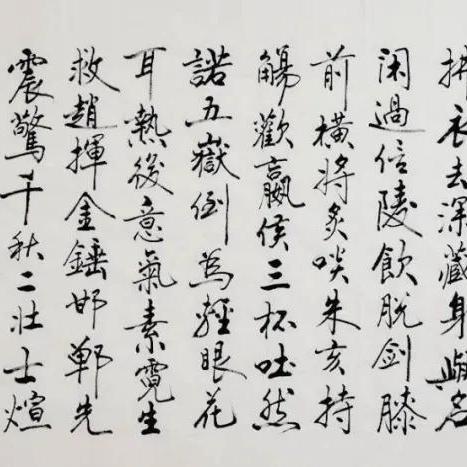 拂衣去深藏身與名
闲過信陵飲脫劍膝
前橫將炙啖朱亥持
觴歡嬴侯三杯吐然
諾五嶽倒為輕眼花
耳熱後意氣素霓生
救趙揮金錘邯鄲先
震驚千秋二壯士煊